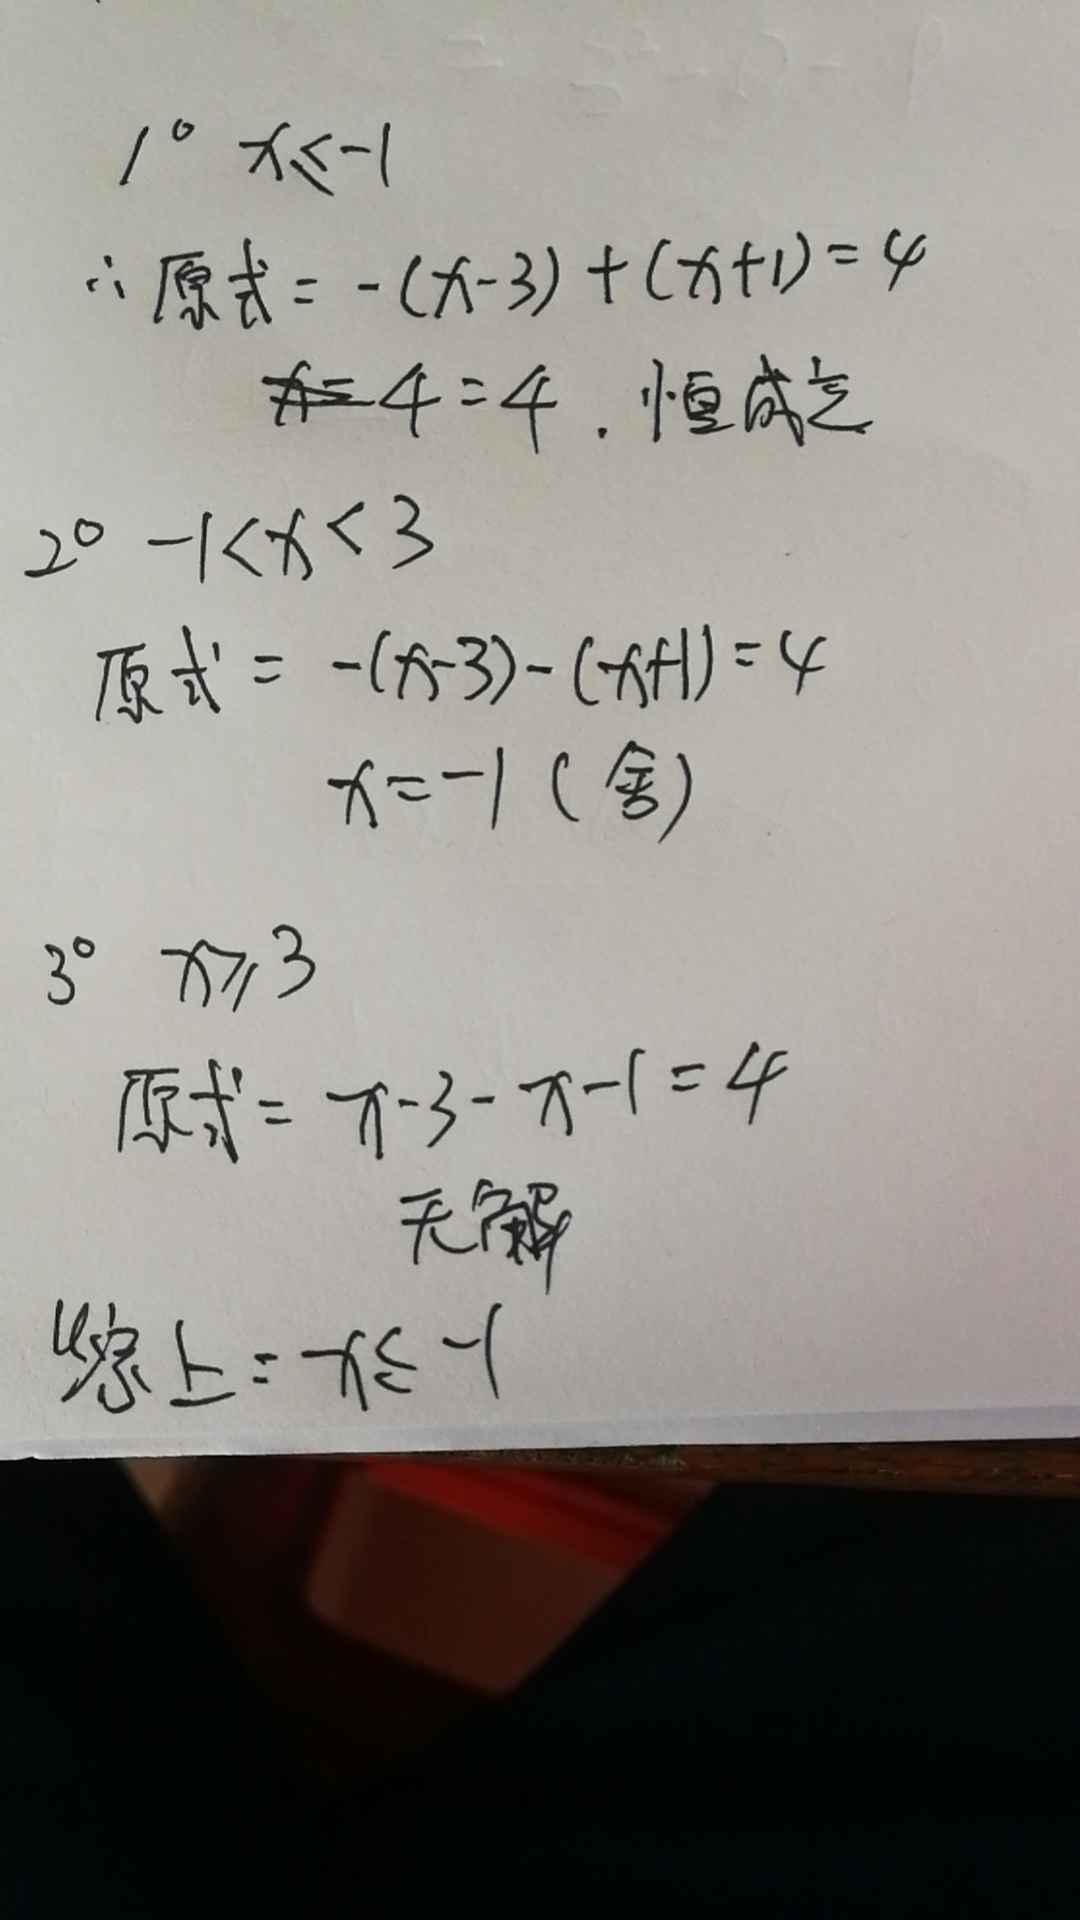 1° x≤-1
∴原式=-(x-3)+(x+1)=4
4=4.恒成立
2° -1<x<3
原式=-(x-3)-(x+1)=4
x=-1(舍)
3° x≥3
原式=x-3-x-1=4
无解
综上=x≤-1